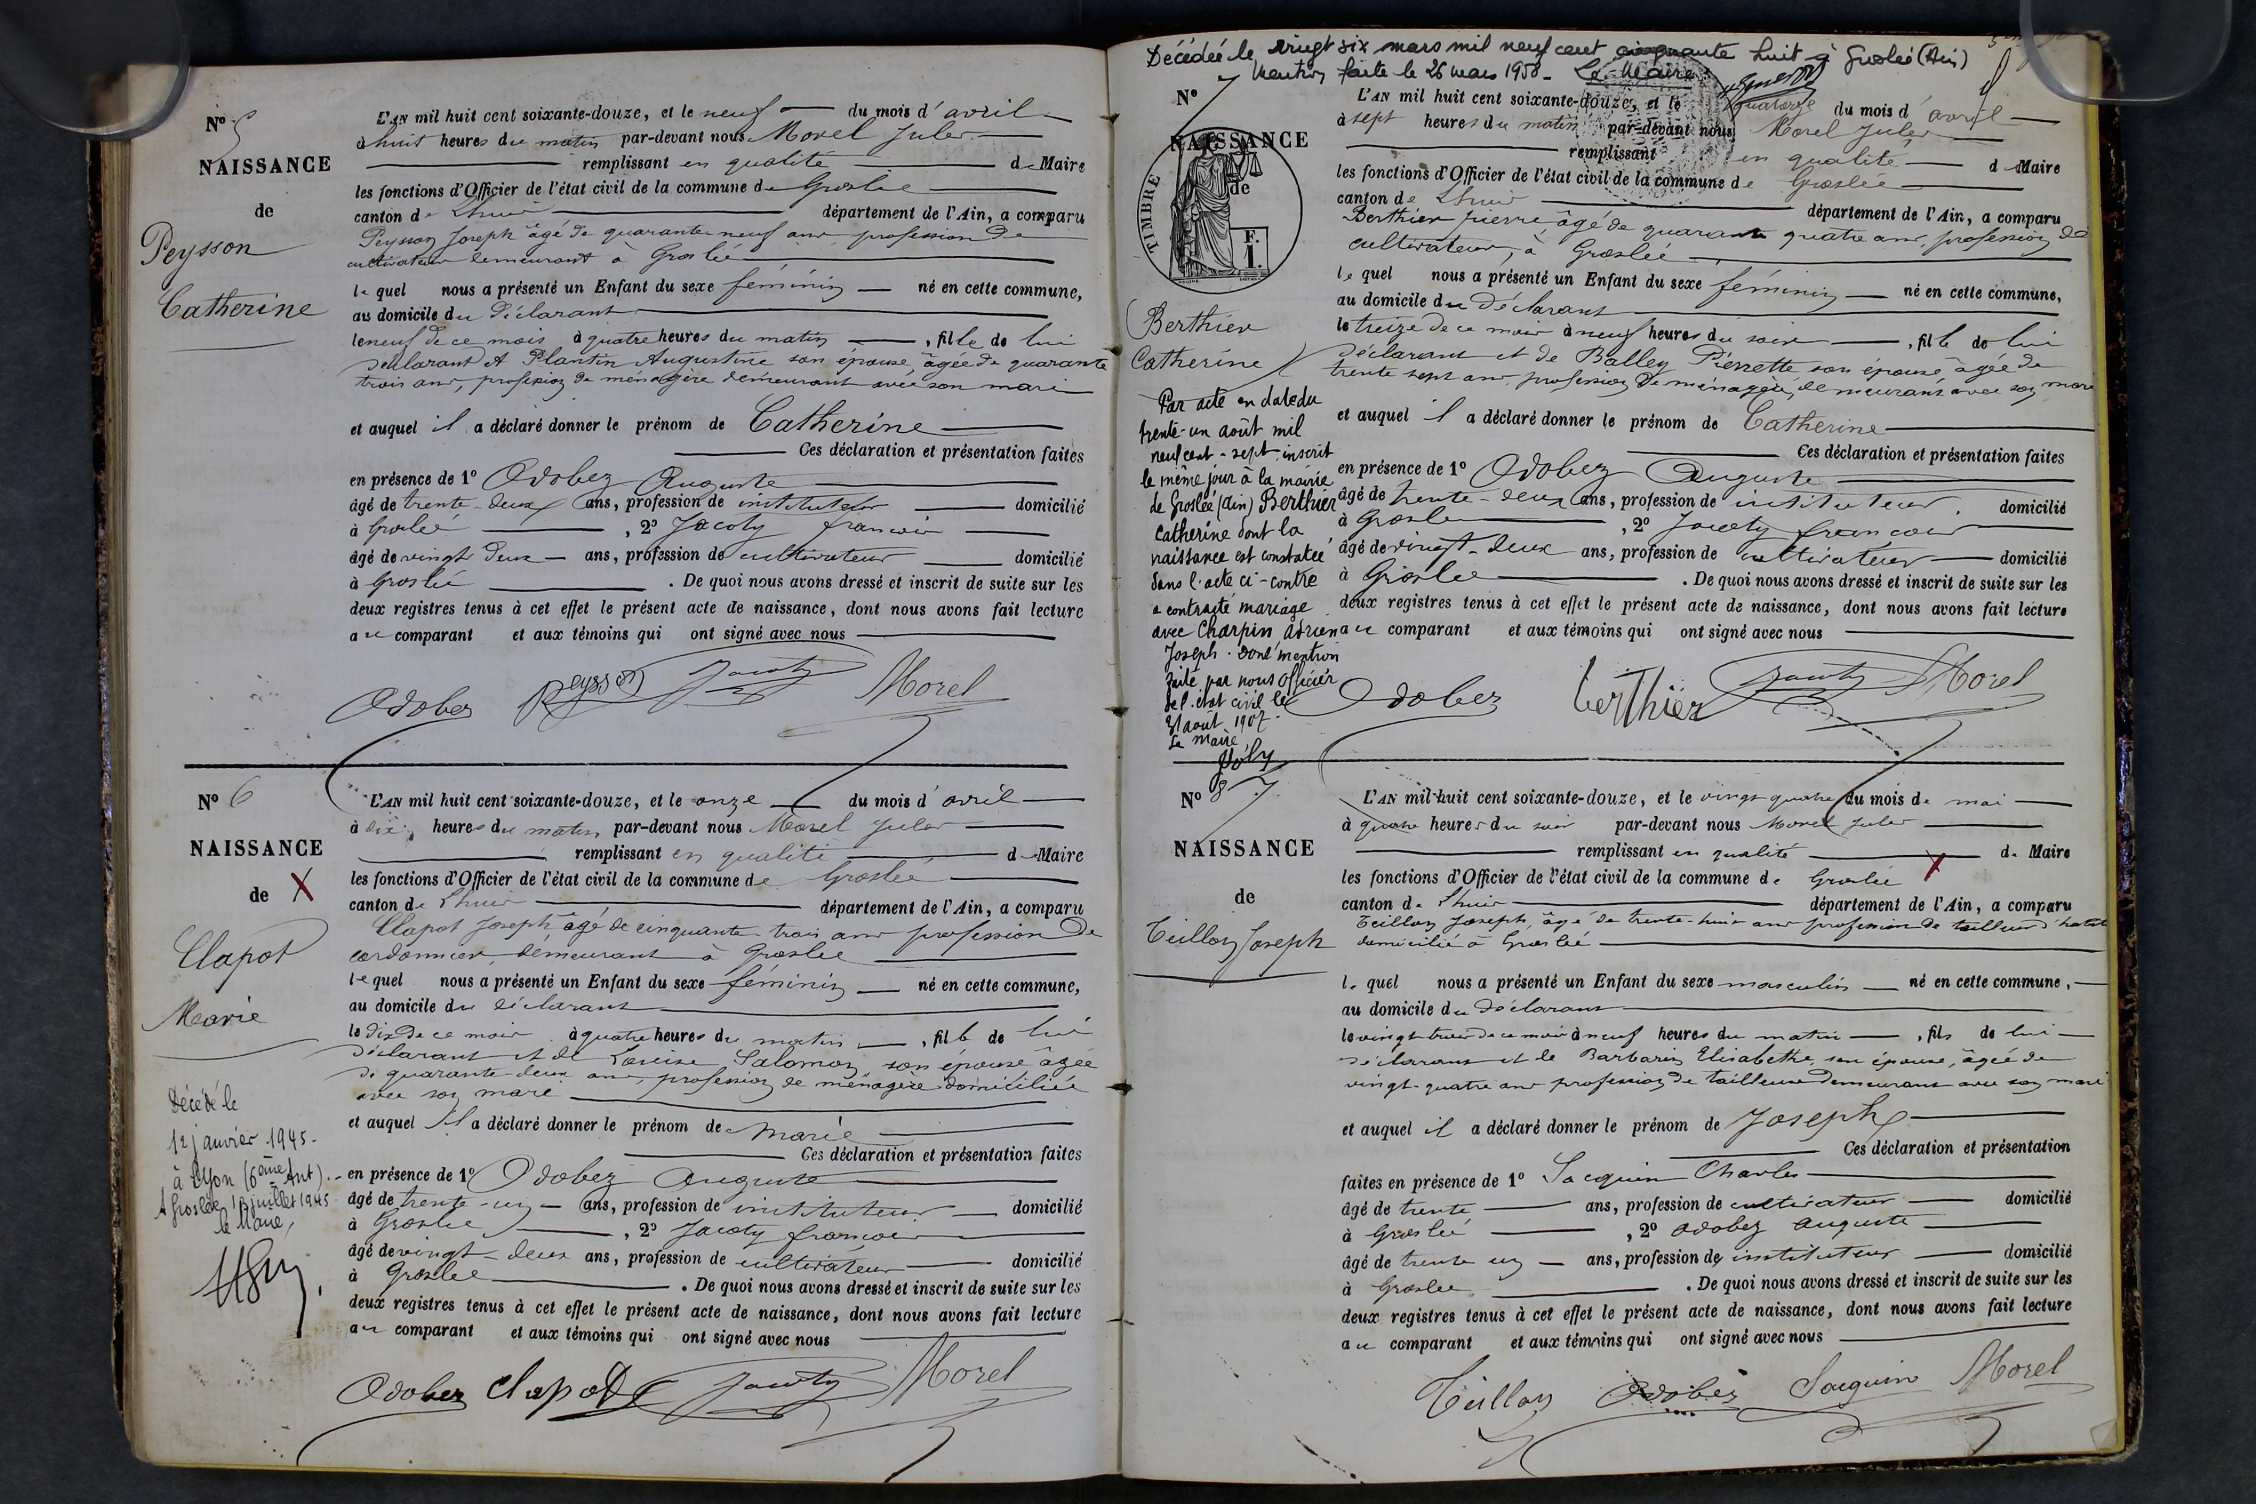 Nº 5
NAISSANCE
de
Peysson
Catherine
L'AN mil huit cent soixante-douze, et le neuf du mois d'avril
à huit heures du matin par-devant nous Morel Jules
remplissant en qualité de Maire
les fonctions d'Officier de l'état civil de la commune de Groslée
canton de Lhuis département de l'Ain, a comparu
Peysson Joseph âgé de quarante neuf ans, profession de
cultivateur demeurant à Groslée
lequel nous a présenté un Enfant du sexe féminin né en cette commune,
au domicile du déclarant
le neuf de ce mois à quatre heures du matin, fille de lui
déclarant et Plantin Augustine son épouse, âgée de quarante
trois ans, profession de ménagère demeurant avec son mari
et auquel il a déclaré donner le prénom de Catherine
Ces déclaration et présentation faites
en présence de 1º Odobez Auguste
âgé de trente-deux ans, profession de instituteur domicilié
à Groslée, 2º Jacoty françois
âgé de vingt deux ans, profession de cultivateur domicilié
à Groslée. De quoi nous avons dressé et inscrit de suite sur les
deux registres tenus à cet effet le présent acte de naissance, dont nous avons fait lecture
au comparant et aux témoins qui ont signé avec nous
Odobez Peysson Jacoty Morel
Nº 6
NAISSANCE
de X
Clapot
Marie
Décédé le
12 janvier 1945-
à Lyon (6ème Arrt).
A Groslée, 18 juillet 1945
le Maire,
L'AN mil huit cent soixante-douze, et le onze du mois d'avril
à dix heures du matin par-devant nous Morel Jules
remplissant en qualité de Maire
les fonctions d'Officier de l'état civil de la commune de Groslée
canton de Lhuis département de l'Ain, a comparu
Clapot Joseph âgé de cinquante-trois ans profession de
cordonnier, demeurant à Groslée
lequel nous a présenté un Enfant du sexe féminin né en cette commune,
au domicile du déclarant
le dix de ce mois à quatre heures du matin, fille de lui
déclarant et de Louise Salomon, son épouse âgée
de quarante-deux ans, profession de ménagère domiciliée
avec son mari
et auquel il a déclaré donner le prénom de marie
Ces déclaration et présentation faites
en présence de 1º Odobez Auguste
âgé de trente-un ans, profession de instituteur domicilié
à Groslée, 2º Jacoty françois
âgé de vingt-deux ans, profession de cultivateur domicilié
à Groslée. De quoi nous avons dressé et inscrit de suite sur les
deux registres tenus à cet effet le présent acte de naissance, dont nous avons fait lecture
au comparant et aux témoins qui ont signé avec nous
Odobez Clapot Jacoty Morel
Décédée le vingt six mars mil neuf cent cinquante huit à Groslée (Ain)
Mention faite le 26 mars 1958 - Le Maire
Nº 7
NAISSANCE
de
TIMBRE
F.
1.
Berthier
Catherine
Par acte en date du
trente-un août mil
neuf cent-sept, inscrit
le même jour à la mairie
de Groslée (Ain) Berthier
Catherine dont la
naissance est constatée
dans l'acte ci-contre
a contracté mariage
avec Charpin Adrien
Joseph. Dont mention
faite par nous officier
de l'état civil le
31 août 1907.
Le maire,
Joly
L'AN mil huit cent soixante-douze, et le quatorze du mois d'avril
à sept heures du matin par-devant nous Morel Jules
remplissant en qualité de Maire
les fonctions d'Officier de l'état civil de la commune de Groslée
canton de Lhuis département de l'Ain, a comparu
Berthier pierre, âgé de quarante quatre ans, profession de
cultivateur, à Groslée
lequel nous a présenté un Enfant du sexe féminin né en cette commune,
au domicile du déclarant
le treize de ce mois à neuf heures du soir, fille de lui
déclarant et de Balley Pierrette son épouse âgée de
trente sept ans, profession de ménagère, demeurant avec son mari
et auquel il a déclaré donner le prénom de Catherine
Ces déclaration et présentation faites
en présence de 1º Odobez Auguste
âgé de trente-deux ans, profession de instituteur domicilié
à Groslée, 2º Jacoty françois
âgé de vingt-deux ans, profession de cultivateur domicilié
à Groslée. De quoi nous avons dressé et inscrit de suite sur les
deux registres tenus à cet effet le présent acte de naissance, dont nous avons fait lecture
au comparant et aux témoins qui ont signé avec nous
Odobez berthier Jacoty Morel
Nº 8
NAISSANCE
de
Teillon Joseph
L'AN mil huit cent soixante-douze, et le vingt quatre du mois de mai
à quatre heures du soir par-devant nous Morel Jules
remplissant en qualité de Maire
les fonctions d'Officier de l'état civil de la commune de Groslée X
canton de Lhuis département de l'Ain, a comparu
Teillon Joseph, âgé de trente-huit ans profession de tailleur d'habits
domicilié à Groslée
lequel nous a présenté un Enfant du sexe masculin né en cette commune,
au domicile du déclarant
le vingt-trois de ce mois à neuf heures du matin, fils de lui
déclarant et de Barbarin Elisabethe son épouse, âgée de
vingt-quatre ans profession de tailleuse demeurant avec son mari
et auquel il a déclaré donner le prénom de Joseph
Ces déclaration et présentation
faites en présence de 1º Jacquin Charles
âgé de trente ans, profession de cultivateur domicilié
à Groslée, 2º Odobez Auguste
âgé de trente un ans, profession de instituteur domicilié
à Groslée. De quoi nous avons dressé et inscrit de suite sur les
deux registres tenus à cet effet le présent acte de naissance, dont nous avons fait lecture
au comparant et aux témoins qui ont signé avec nous
Teillon Odobez Jacquin Morel